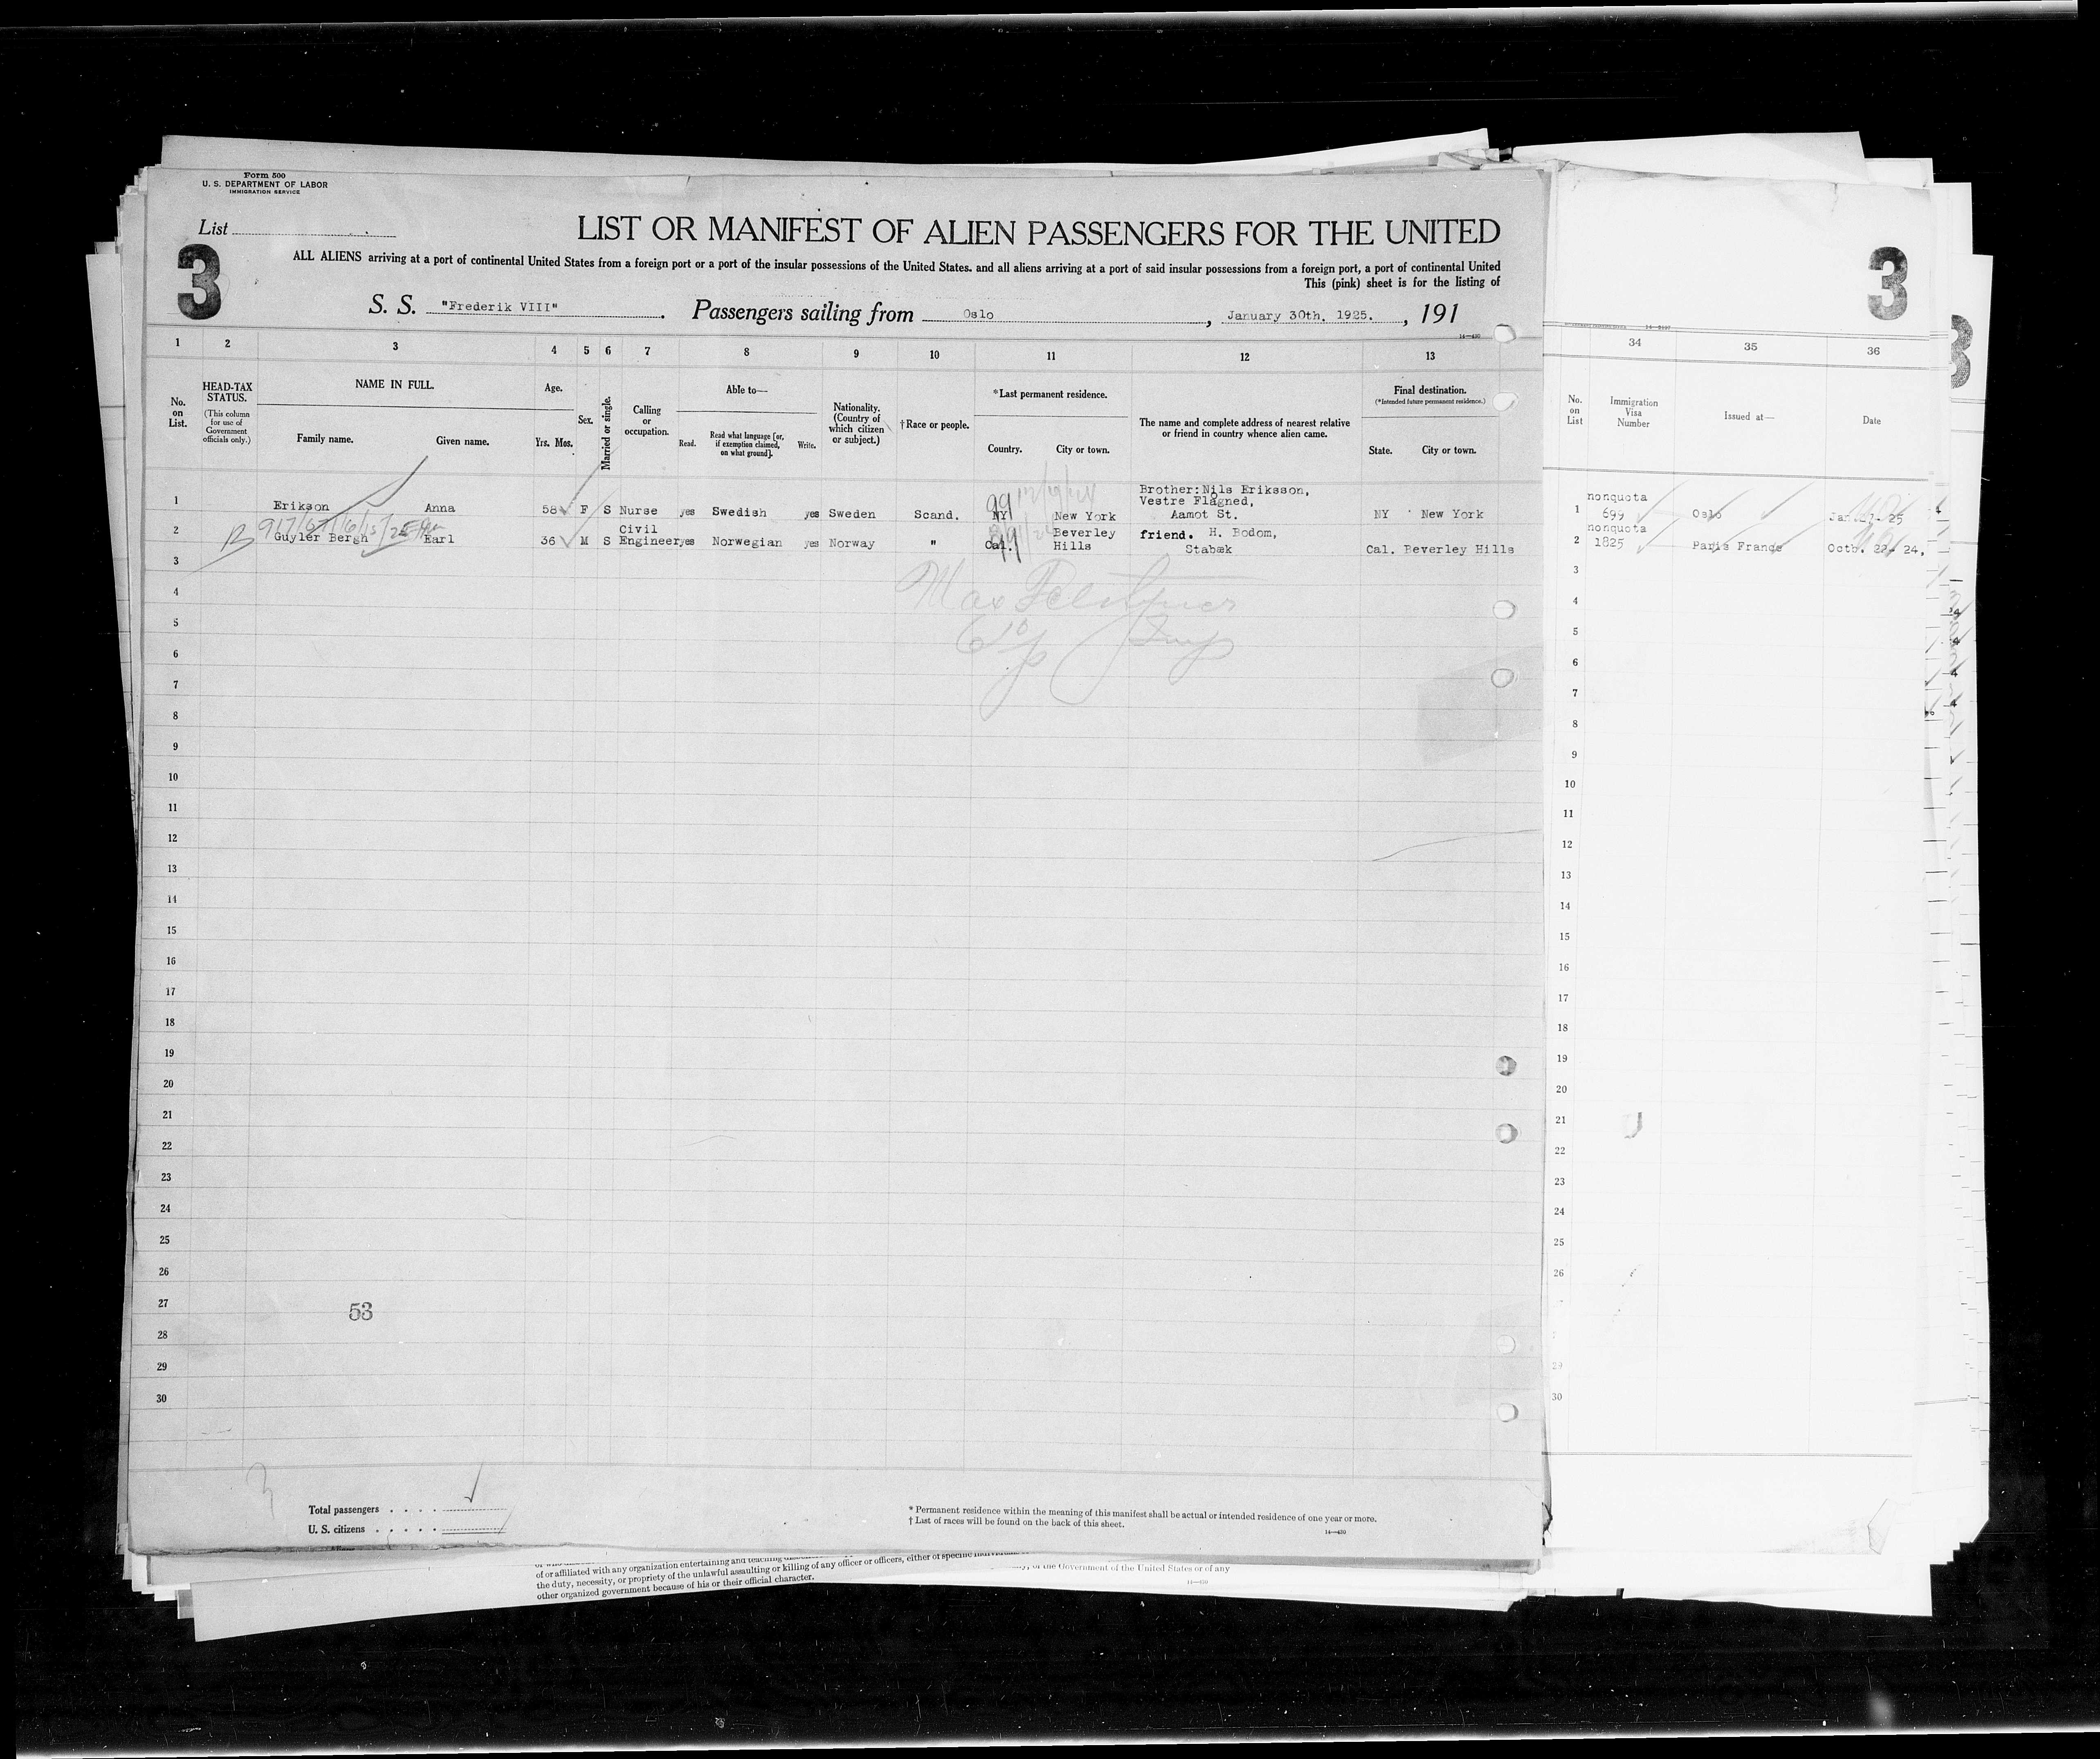 Form 500
U. S. DEPARTMENT OF LABOR
IMMIGRATION SERVICE
List
3
LIST OR MANIFEST OF ALIEN PASSENGERS FOR THE UNITED
ALL ALIENS arriving at a port of continental United States from a foreign port or a port of the insular possessions of the United States, and all aliens arriving at a port of said insular possessions from a foreign port, a port of continental United
This (pink) sheet is for the listing of
S. S. "Frederik VIII" . Passengers sailing from Oslo , January 30th, 1925. , 191
14—430
3
3
1 2 3 4 5 6 7 8 9 10 11 12 13
34 35 36
No. on List.
HEAD-TAX STATUS.
(This column for use of Government officials only.)
NAME IN FULL.
Family name. Given name.
Age.
Yrs. Mos.
Sex.
Married or single.
Calling or occupation.
Able to—
Read. Read what language [or, if exemption claimed, on what ground]. Write.
Nationality. (Country of which citizen or subject.)
†Race or people.
*Last permanent residence.
Country. City or town.
The name and complete address of nearest relative or friend in country whence alien came.
Final destination.
(*Intended future permanent residence.)
State. City or town.
No. on List
Immigration Visa Number
Issued at—
Date
Brother: Nils Eriksson,
Vestre Flågned,
1 Erikson Anna 58 F S Nurse yes Swedish yes Sweden Scand. NY New York Aamot St. NY New York
99
1 nonquota 699 Oslo 25
B
2 Guyler Bergh Earl 36 M S Civil Engineer yes Norwegian yes Norway " Cal. Beverley Hills friend. H. Bodom, Stabæk Cal. Beverley Hills
99
2 nonquota 1825 Paris France Octb. 22- 24,
3
4
Max
5
6
7
8
9
10
11
12
13
14
15
16
17
18
19
20
21
22
23
24
25
26
27
53
28
29
30
3
4
5
6
7
8
9
10
11
12
13
14
15
16
17
18
19
20
21
22
23
24
25
26
29
30
Total passengers . . . .
U. S. citizens . . . . .
* Permanent residence within the meaning of this manifest shall be actual or intended residence of one year or more.
† List of races will be found on the back of this sheet.
14—430
of or affiliated with any organization entertaining and teaching
the duty, necessity, or propriety of the unlawful assaulting or killing of any officer or officers, either of specific
other organized government because of his or their official character.
of the Government of the United States or of any